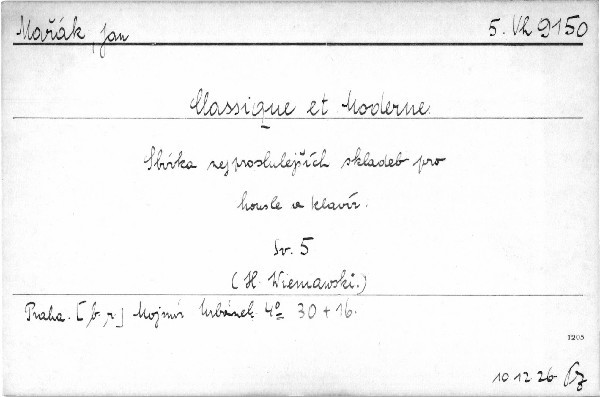 Mařák, Jan
5. Vh 9150
Classique et Moderne.
Sbírka nejproslulejších skladeb pro
housle a klavír.
Sv. 5
(H. Wieniawski.)
Praha. [b. r.] Mojmír Urbánek. 4º 30 + 16.
1205
10 12 26